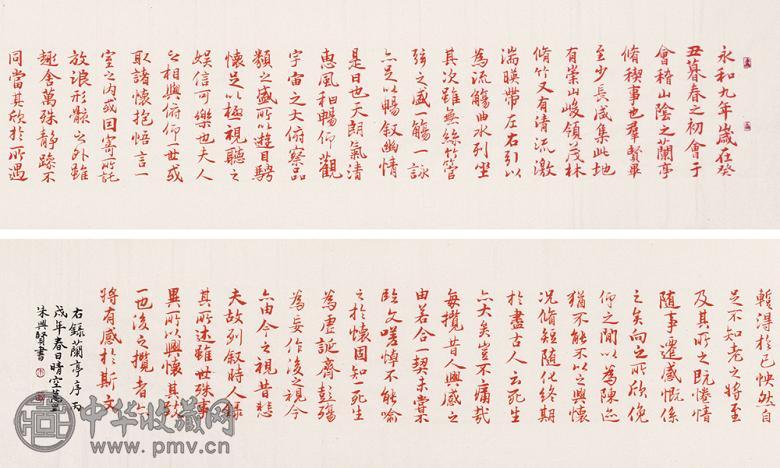 永和九年歲在癸
丑暮春之初會于
會稽山陰之蘭亭
脩稧事也羣賢畢
至少長咸集此地
有崇山峻領茂林
脩竹又有清流激
湍暎帶左右引以
為流觴曲水列坐
其次雖無絲竹管
弦之盛一觴一詠
亦足以暢敘幽情
是日也天朗氣清
惠風和暢仰觀
宇宙之大俯察品
類之盛所以遊目騁
懷足以極視聽之
娛信可樂也夫人
之相與俯仰一世或
取諸懷抱悟言一
室之內或因寄所託
放浪形骸之外雖
趣舍萬殊靜躁不
同當其欣於所遇
暫得於己怏然自
足不知老之將至
及其所之既惓情
隨事遷感慨係
之矣向之所欣俛
仰之閒以為陳迹
猶不能不以之興懷
況脩短隨化終期
於盡古人云死生
亦大矣豈不痛哉
每攬昔人興感之
由若合一契未嘗
臨文嗟悼不能喻
之於懷固知一死生
為虛誕齊彭殤
為妄作後之視今
亦由今之視昔悲
夫故列敘時人錄
其所述雖世殊事
異所以興懷其致
一也後之攬者亦
將有感於斯文
右錄蘭亭序丙
戌年春日晴窗
朱興賢書
中华收藏网
www.pmv.cn